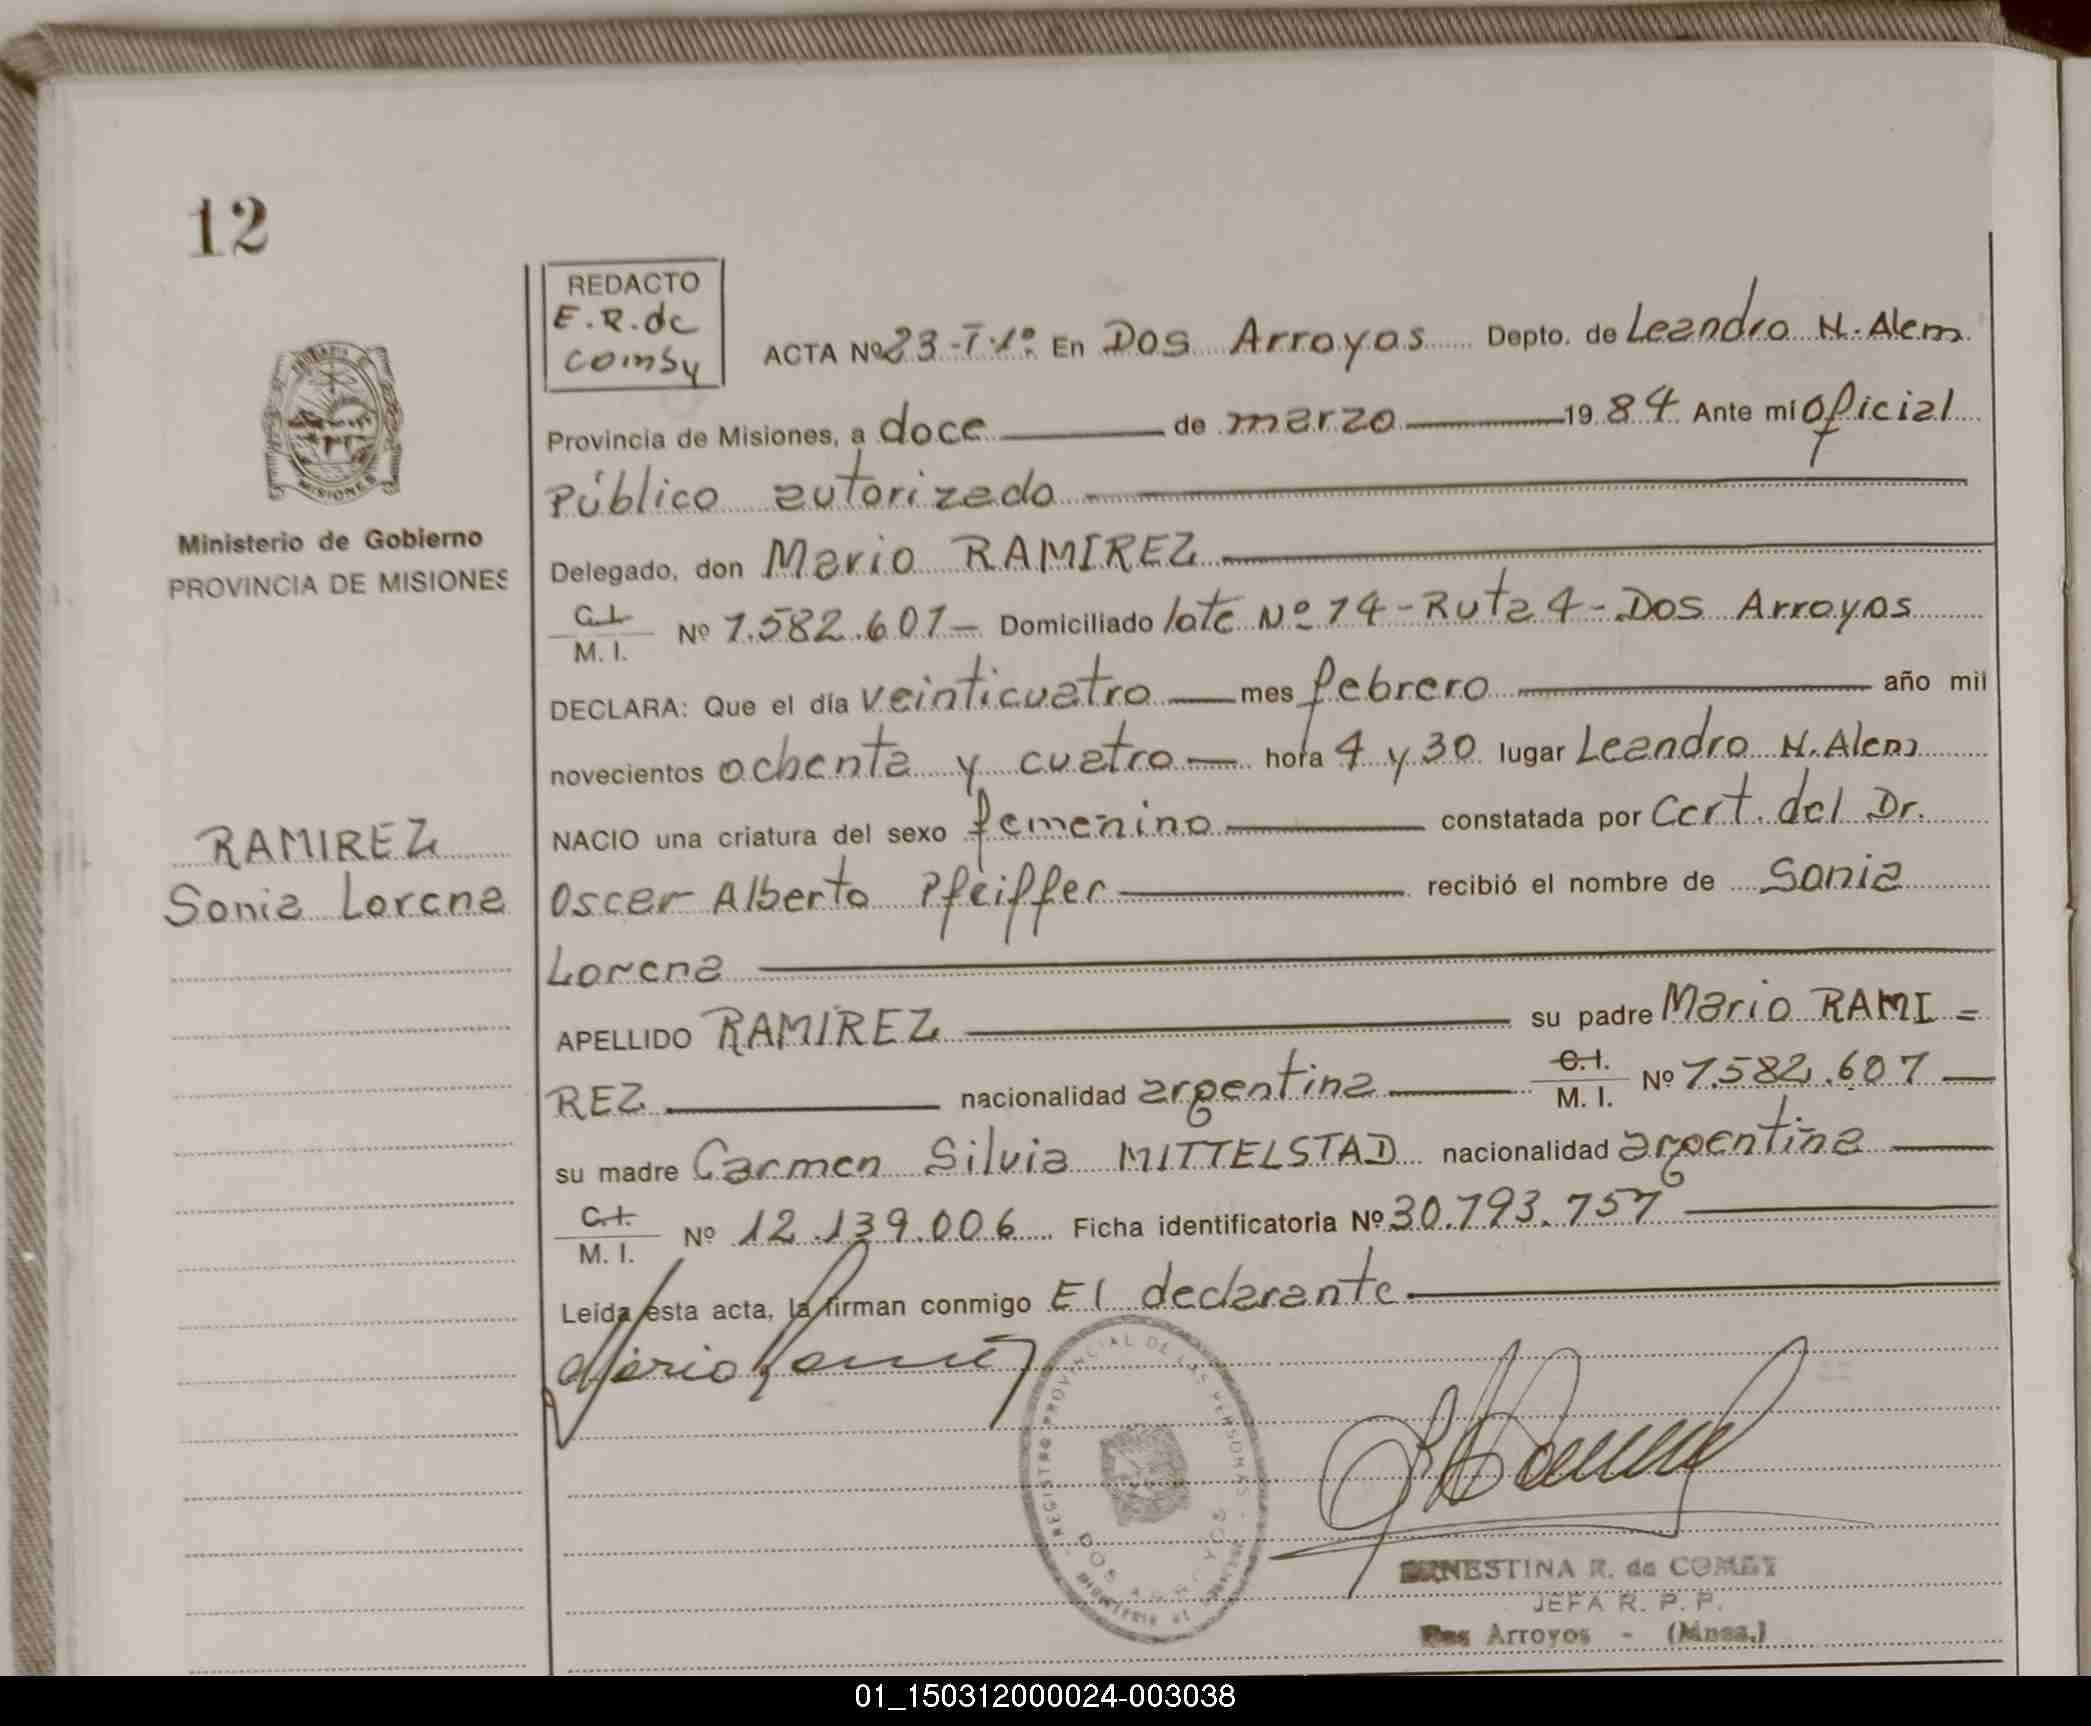 12
REDACTO
E.R.de
comsy
ACTA Nº 23-Tº1º En Dos Arroyos Depto. de Leandro N. Alem
Provincia de Misiones, a doce de marzo 1984 Ante mi oficial
Público autorizado
Ministerio de Gobierno
PROVINCIA DE MISIONES
Delegado, don Mario RAMIREZ
C.I. M. I. Nº 7.582.607 Domiciliado lote Nº 14 - Ruta 4 - Dos Arroyos
DECLARA: Que el día veinticuatro mes febrero año mil
novecientos ochenta y cuatro hora 4 y 30 lugar Leandro N. Alem
NACIO una criatura del sexo femenino constatada por Cert. del Dr.
RAMIREZ
Sonia Lorena
Oscar Alberto Pfeiffer recibió el nombre de Sonia
Lorena
APELLIDO RAMIREZ su padre Mario RAMI =
REZ nacionalidad argentina C.I. M. I. Nº 7.582.607
su madre Carmen Silvia MITTELSTAD nacionalidad argentina
C.I. M. I. Nº 12.139.006 Ficha identificatoria Nº 30.793.757
Leída esta acta, la firman conmigo El declarante
Mario Ramirez
REGISTRO PROVINCIAL DE LAS PERSONAS
DOS ARROYOS
ERNESTINA R. de COMSY
JEFA R. P. P.
Dos Arroyos - (Mnes.)
01_150312000024-003038